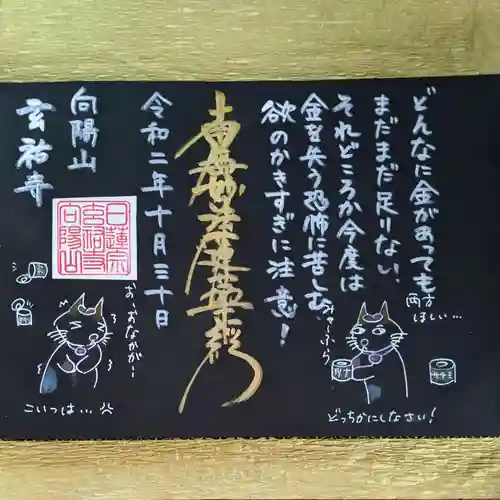 どんなに金があっても
まだまだ足りない、
それどころか今度は
金を失う恐怖に苦しむ
欲のかきすぎに注意！
南無妙法蓮華経
令和二年十月三十日
向陽山
玄祐寺
日蓮宗
玄祐寺
向陽山
両方
ほしい…
みゃ〜ふら
ツナ
ササミ
どっちかにしなさい！
お、おなかが…
こいつは…